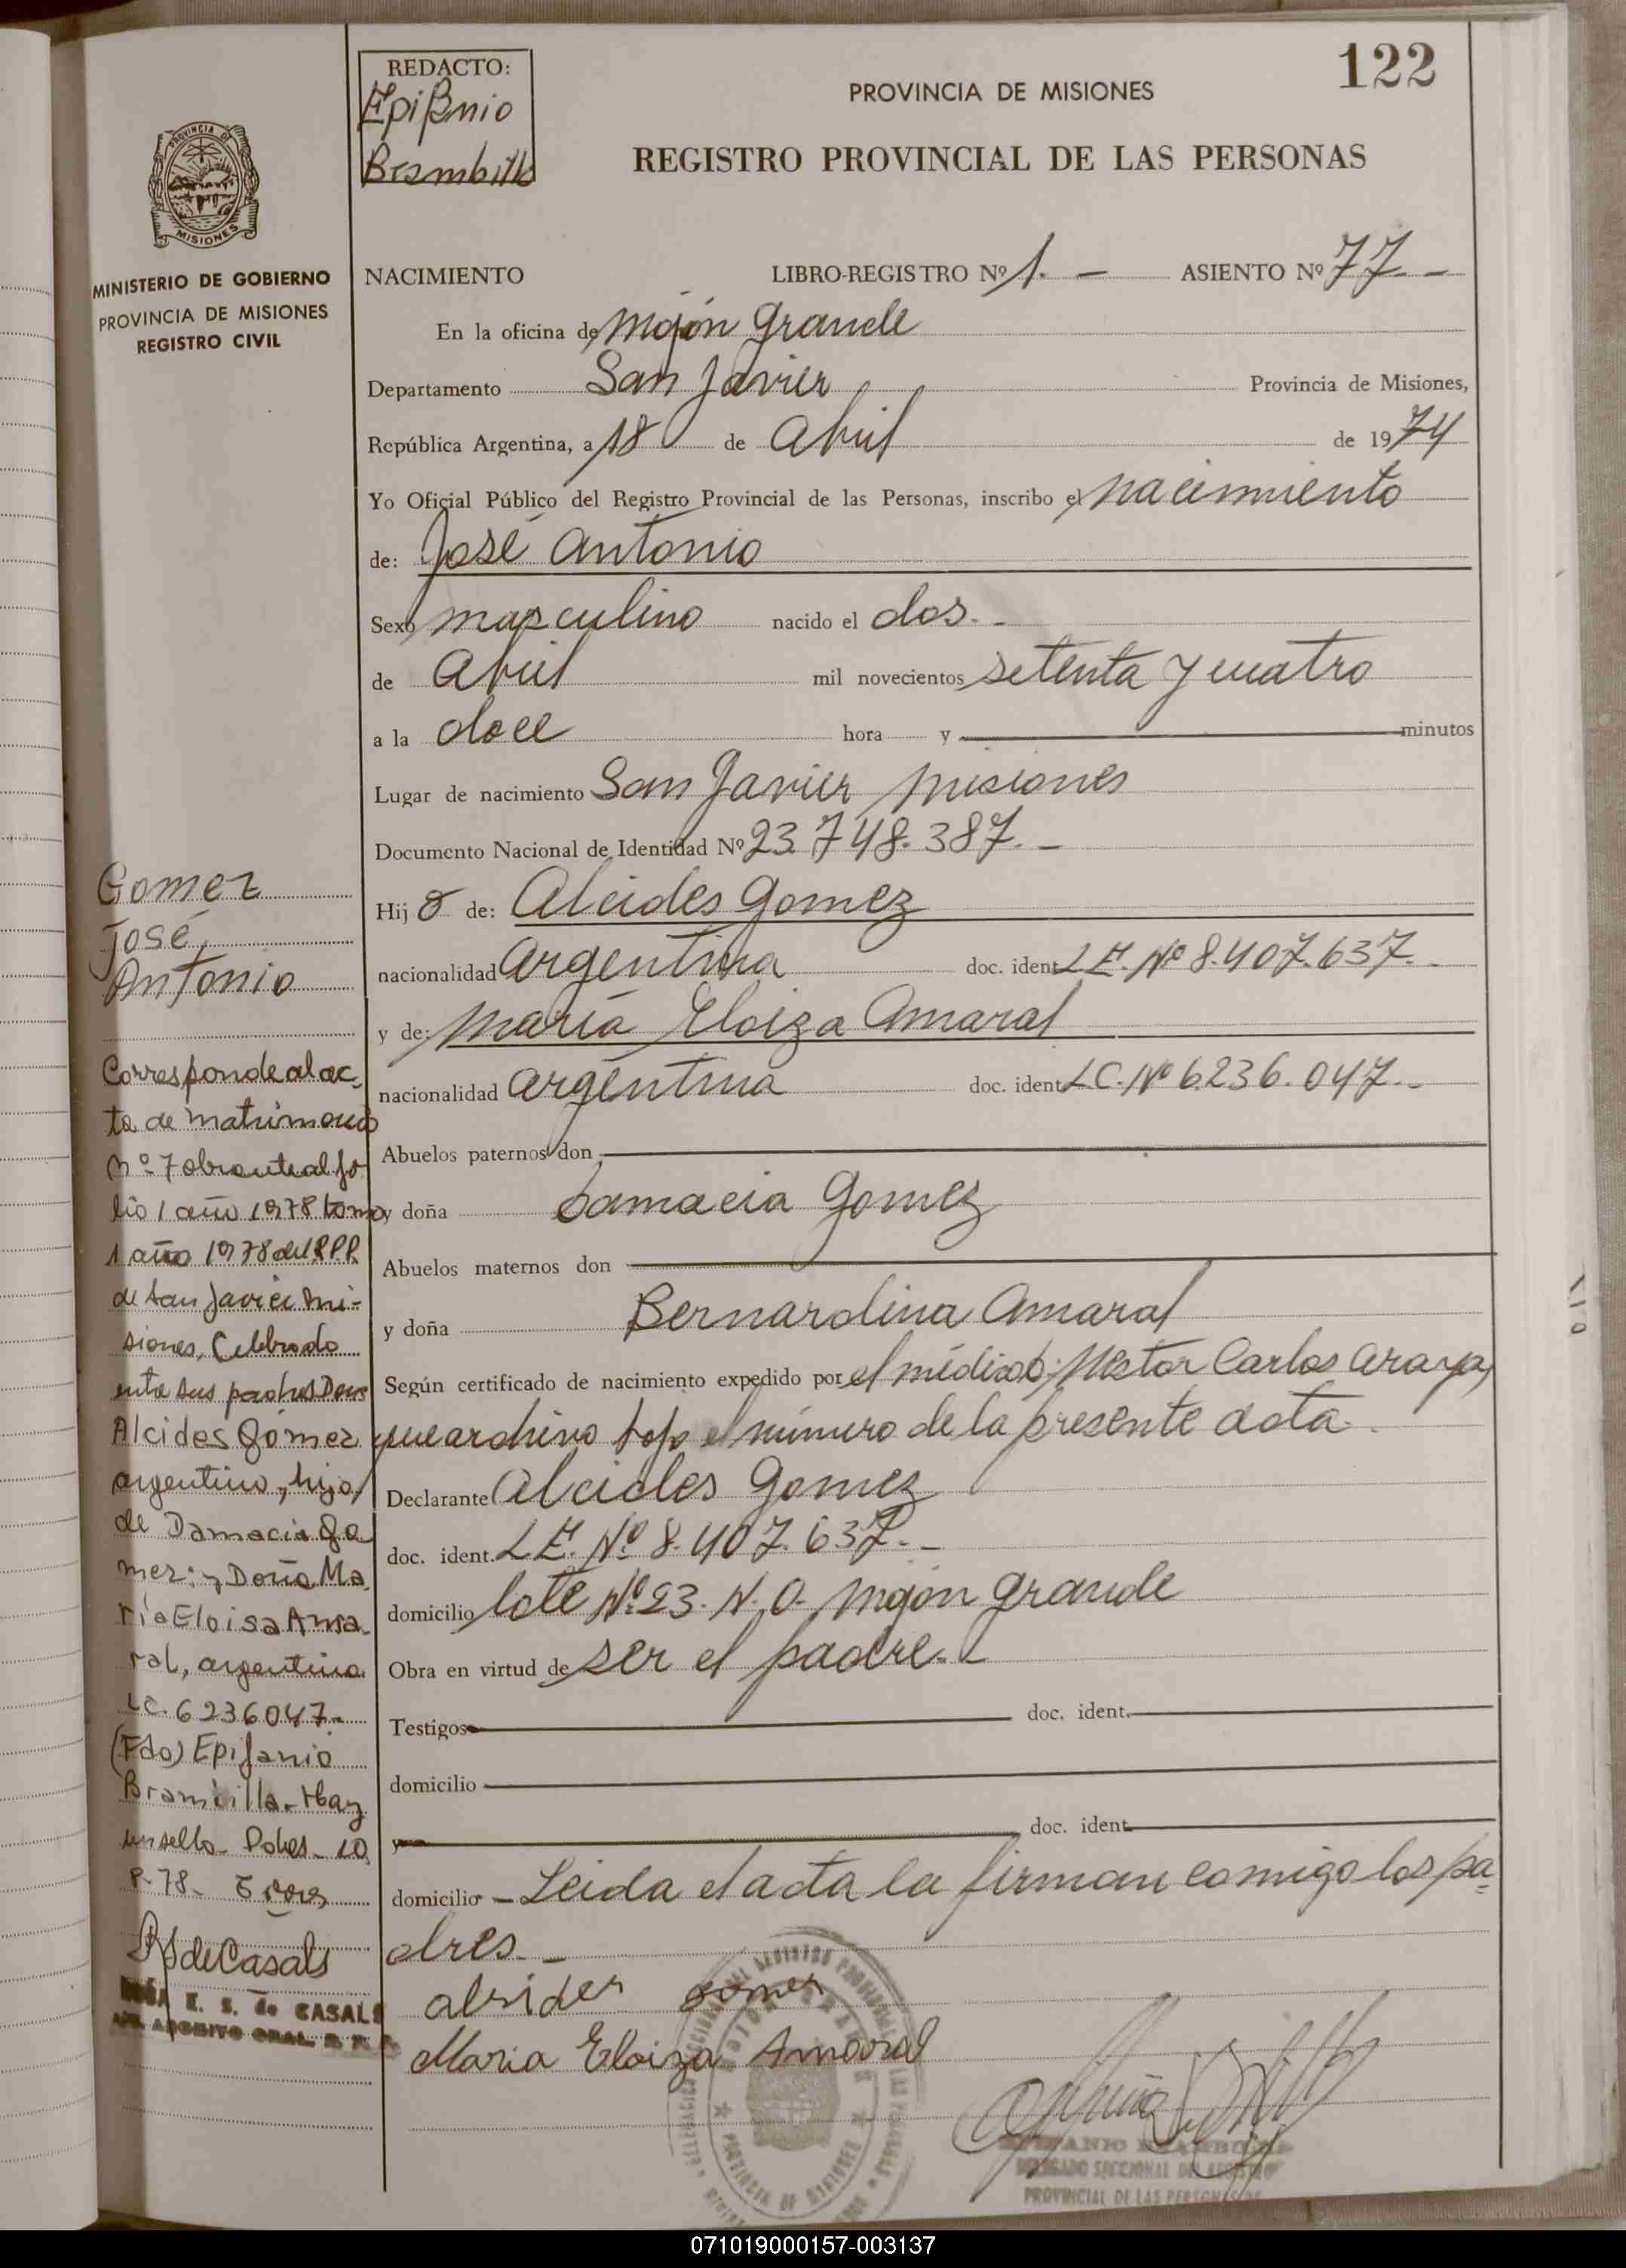 122
REDACTO:
Epifanio
Brambilla
PROVINCIA DE MISIONES
REGISTRO PROVINCIAL DE LAS PERSONAS
PROVINCIA DE
MISIONES
MINISTERIO DE GOBIERNO
PROVINCIA DE MISIONES
REGISTRO CIVIL
NACIMIENTO LIBRO-REGISTRO Nº 1. — ASIENTO Nº 77. —
En la oficina de Mojón Grande
Departamento San Javier Provincia de Misiones,
República Argentina, a 18 de Abril de 1974
Yo Oficial Público del Registro Provincial de las Personas, inscribo el nacimiento
de: José Antonio
Sexo masculino nacido el dos. -
de Abril mil novecientos setenta y cuatro
a la doce hora y — minutos
Lugar de nacimiento San Javier Misiones
Documento Nacional de Identidad Nº 23.748.387. —
Hijo de: Alcides Gomez
nacionalidad argentina doc. ident. L.E. Nº 8.407.637. -
y de: María Eloiza Amaral
nacionalidad argentina doc. ident. L.C. Nº 6236.047. -
Abuelos paternos don —
y doña Damacia Gomez
Abuelos maternos don —
y doña Bernardina Amaral
Según certificado de nacimiento expedido por el médico: Nestor Carlos Araya,
que archivo bajo el número de la presente acta.
Declarante Alcides Gomez
doc. ident. L.E. Nº 8.407.637. -
domicilio lote Nº 23. N.O. Mojón Grande
Obra en virtud de ser el padre. -
Testigos — doc. ident. —
domicilio —
y — doc. ident. —
domicilio — Leida el acta la firman comigo los pa=
dres. —
alsides gomes
Maria Eloiza Amaral
Gomez
José,
Antonio
Corresponde al ac-
ta de matrimonio
nº 7 obrante al fo
lio 1 año 1978 tomo
1 año 1978 del R.P.P.
de San Javier Mi-
siones, Celebrado
entre sus padres Don
Alcides Gómez
argentino, hijo
de Damacia Go
mez: y Doña Ma
ría Eloisa Ama-
ral, argentina
LC. 6236047-
(Fdo) Epifanio
Brambilla. Hay
un sello. Pdas. 10
8-78-
RS de Casals
E. S. de CASALS
EPIFANIO BRAMBILLA
DELEGADO SECCIONAL DEL REGISTRO
PROVINCIAL DE LAS PERSONAS
PROVINCIA DE MISIONES
071019000157-003137